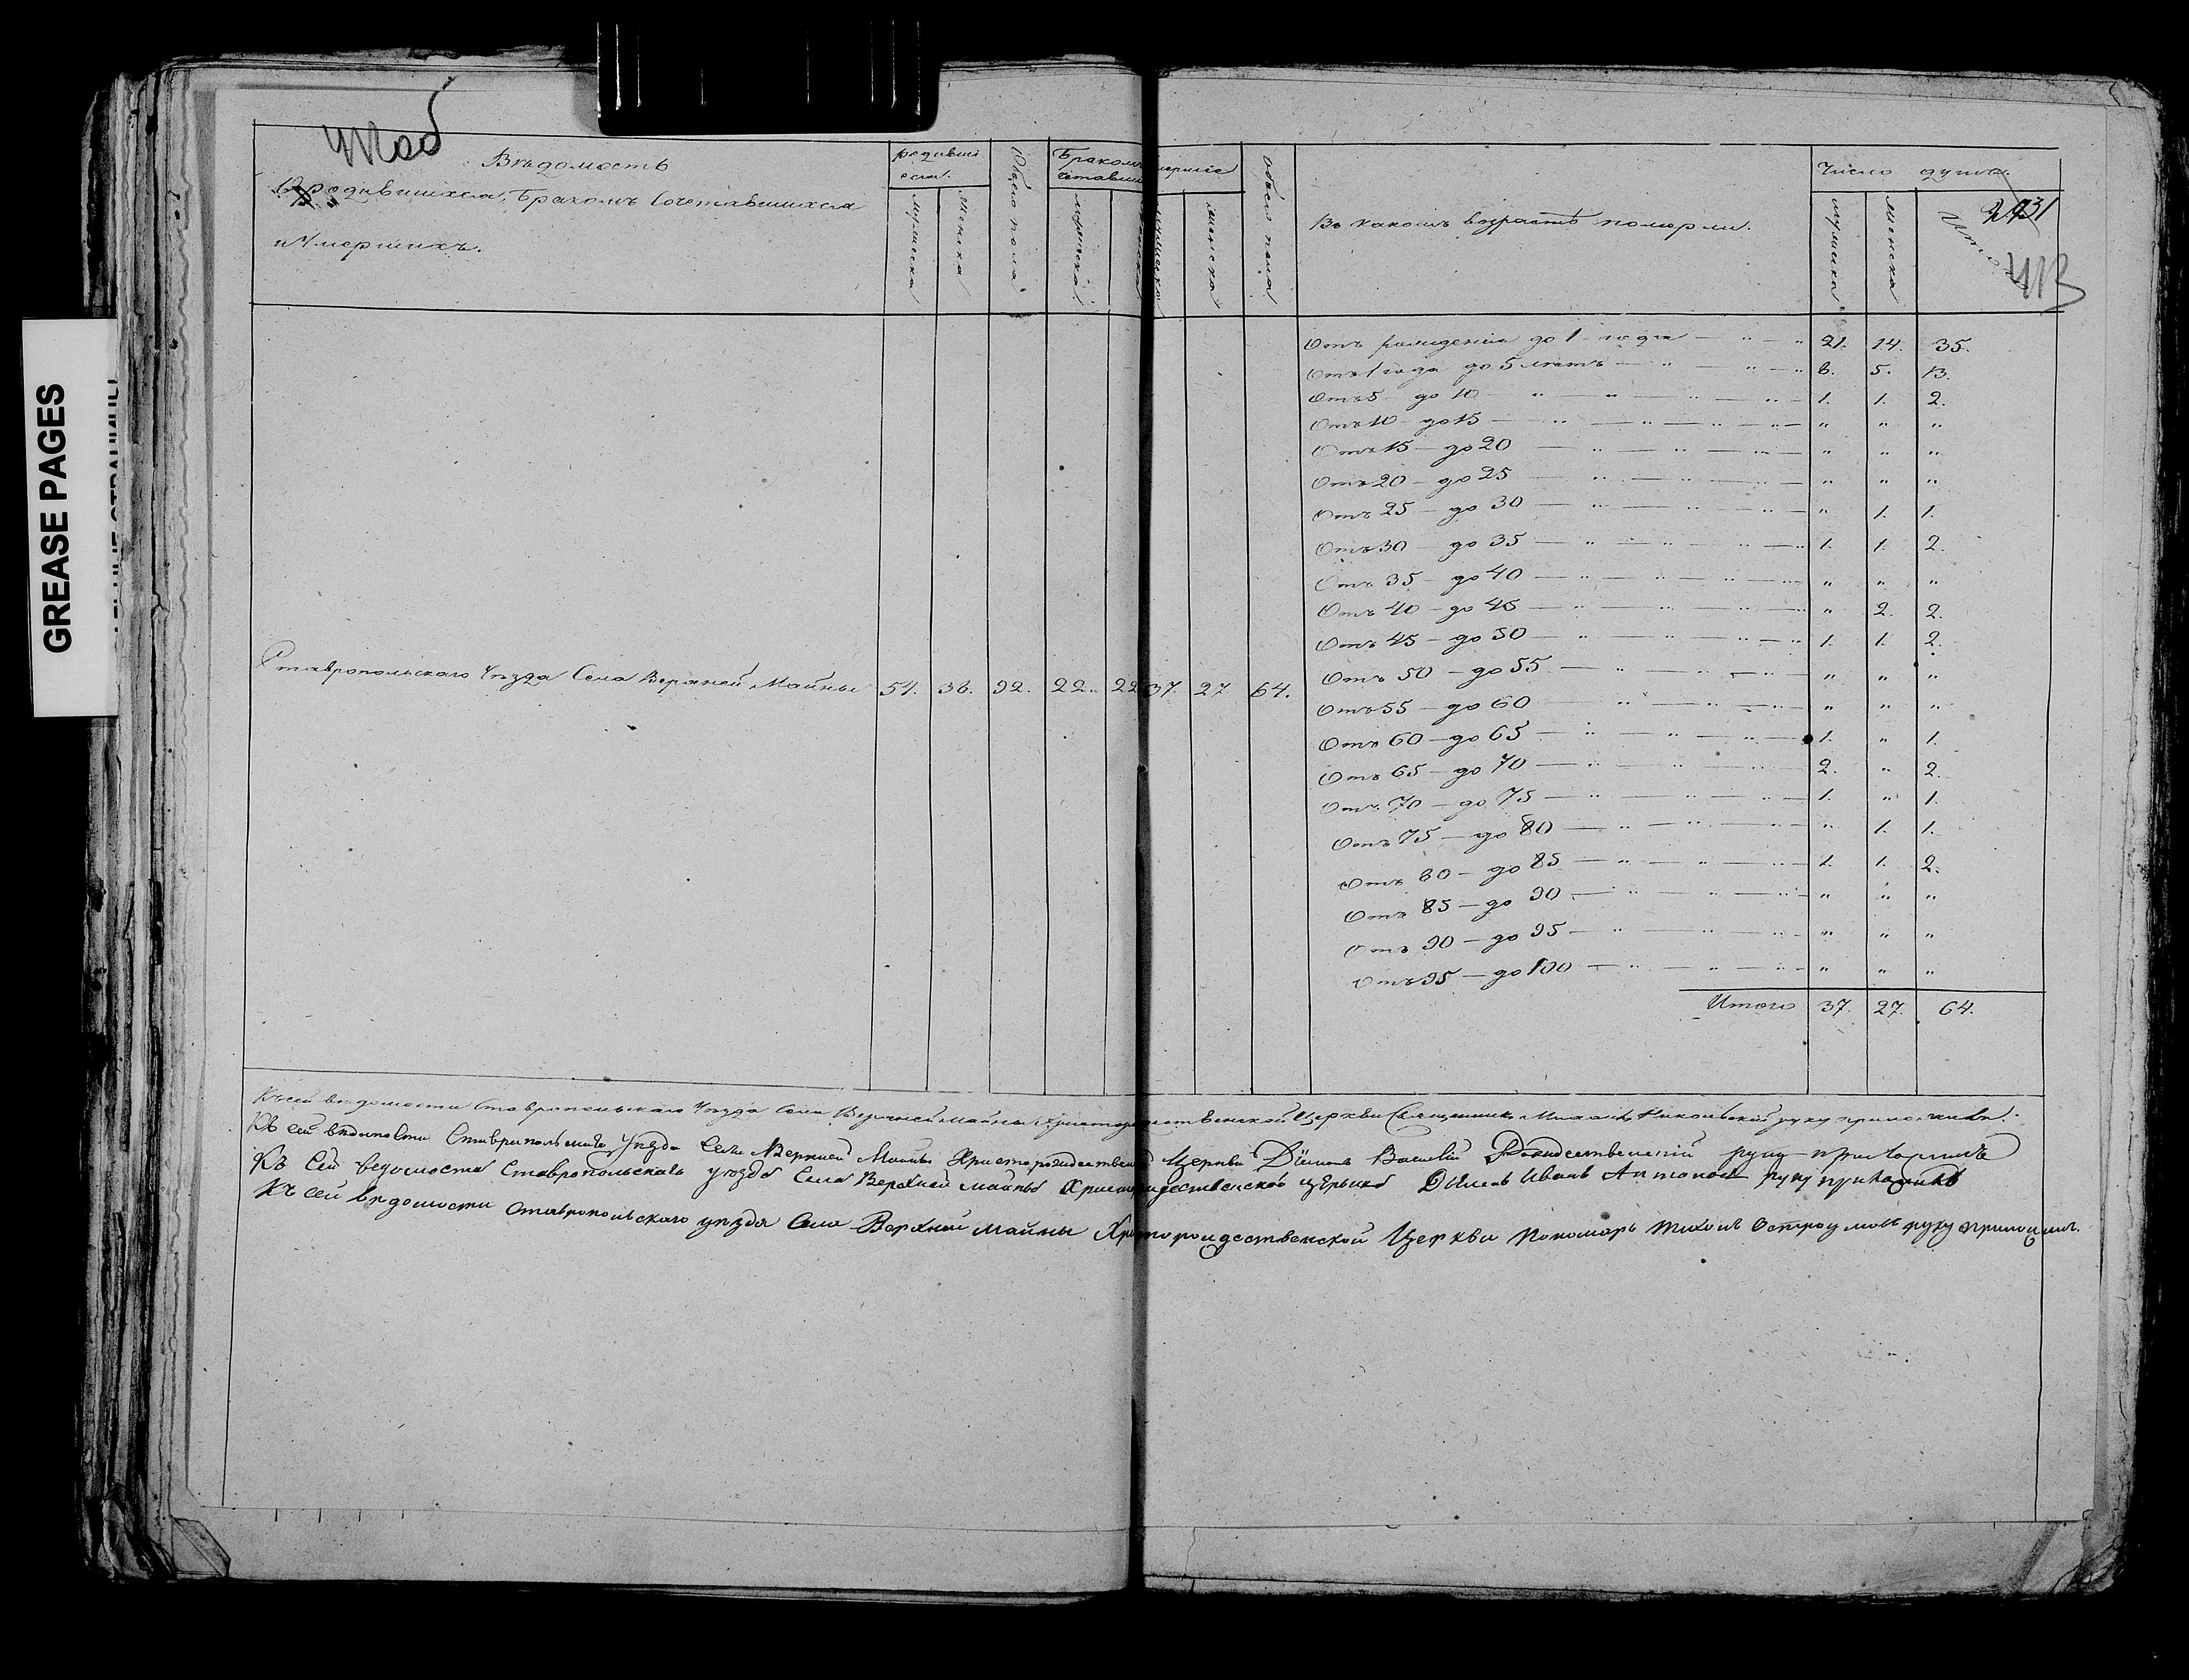 GREASE PAGES
Вѣдомость
О родившихся, Бракомъ Сочетавшихся
и Умершихъ.
родивши
еся.
мужеска
женска
Обоего пола
Бракомъ
мужеска
Обоего пола
мужеска
женска
Въ какомъ возрастѣ померли.
Число душъ.
мужска
женска
413
Отъ рожденія до 1 года 21. 14. 35.
Отъ 1 года до 5 лѣтъ 8. 5. 13.
Отъ 5 до 10 1. 1. 2.
Отъ 10 до 15 " " "
Отъ 15 до 20 " " "
Отъ 20 до 25 " " "
Отъ 25 до 30 " 1. 1.
Отъ 30 до 35 1. 1. 2.
Отъ 35 до 40 " " "
Отъ 40 до 45 " 2. 2.
Отъ 45 до 50 1. 1. 2.
Ставропольскаго Уѣзда Села Верхней Майны 54. 38. 92. 22. 22 37. 27. 64.
Отъ 50 до 55 " " "
Отъ 55 до 60 " " "
Отъ 60 до 65 1. " 1.
Отъ 65 до 70 2. " 2.
Отъ 70 до 75 1. " 1.
Отъ 75 до 80 " 1. 1.
Отъ 80 до 85 1. 1. 2.
Отъ 85 до 90 " " "
Отъ 90 до 95 " " "
Отъ 95 до 100 " " "
Итого 37. 27. 64.
Къ сей вѣдомости Ставропольскаго Уѣзда Села Верхней Майны Христорождественской Церкви Священникъ Никольской руку приложилъ.
Къ сей вѣдомости Ставропольскаго Уѣзда Села Верхней Майны Христорождественской Церкви Дьяконъ Василій Рождественскій руку приложилъ
Къ Сей ведомости Ставропольскаго уѣзда Села Верхней майны Христорождественской церкви Дьячекъ Иванъ Антоновъ руку приложилъ
Къ сей вѣдомости Ставропольскаго уѣзда Села Верхней майны Христорождественской Церкви Пономарь Тихонъ Остроумовъ руку приложилъ.